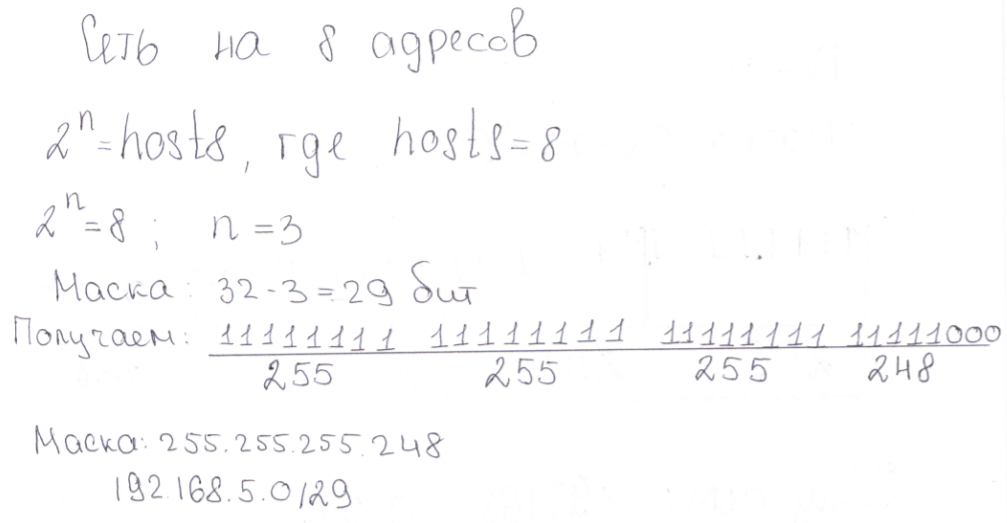 Сеть на 8 адресов
2ⁿ=hosts, где hosts=8
2ⁿ=8; n=3
Маска: 32-3=29 бит
Получаем: 11111111 11111111 11111111 11111000
255 255 255 248
Маска: 255.255.255.248
192.168.5.0/29